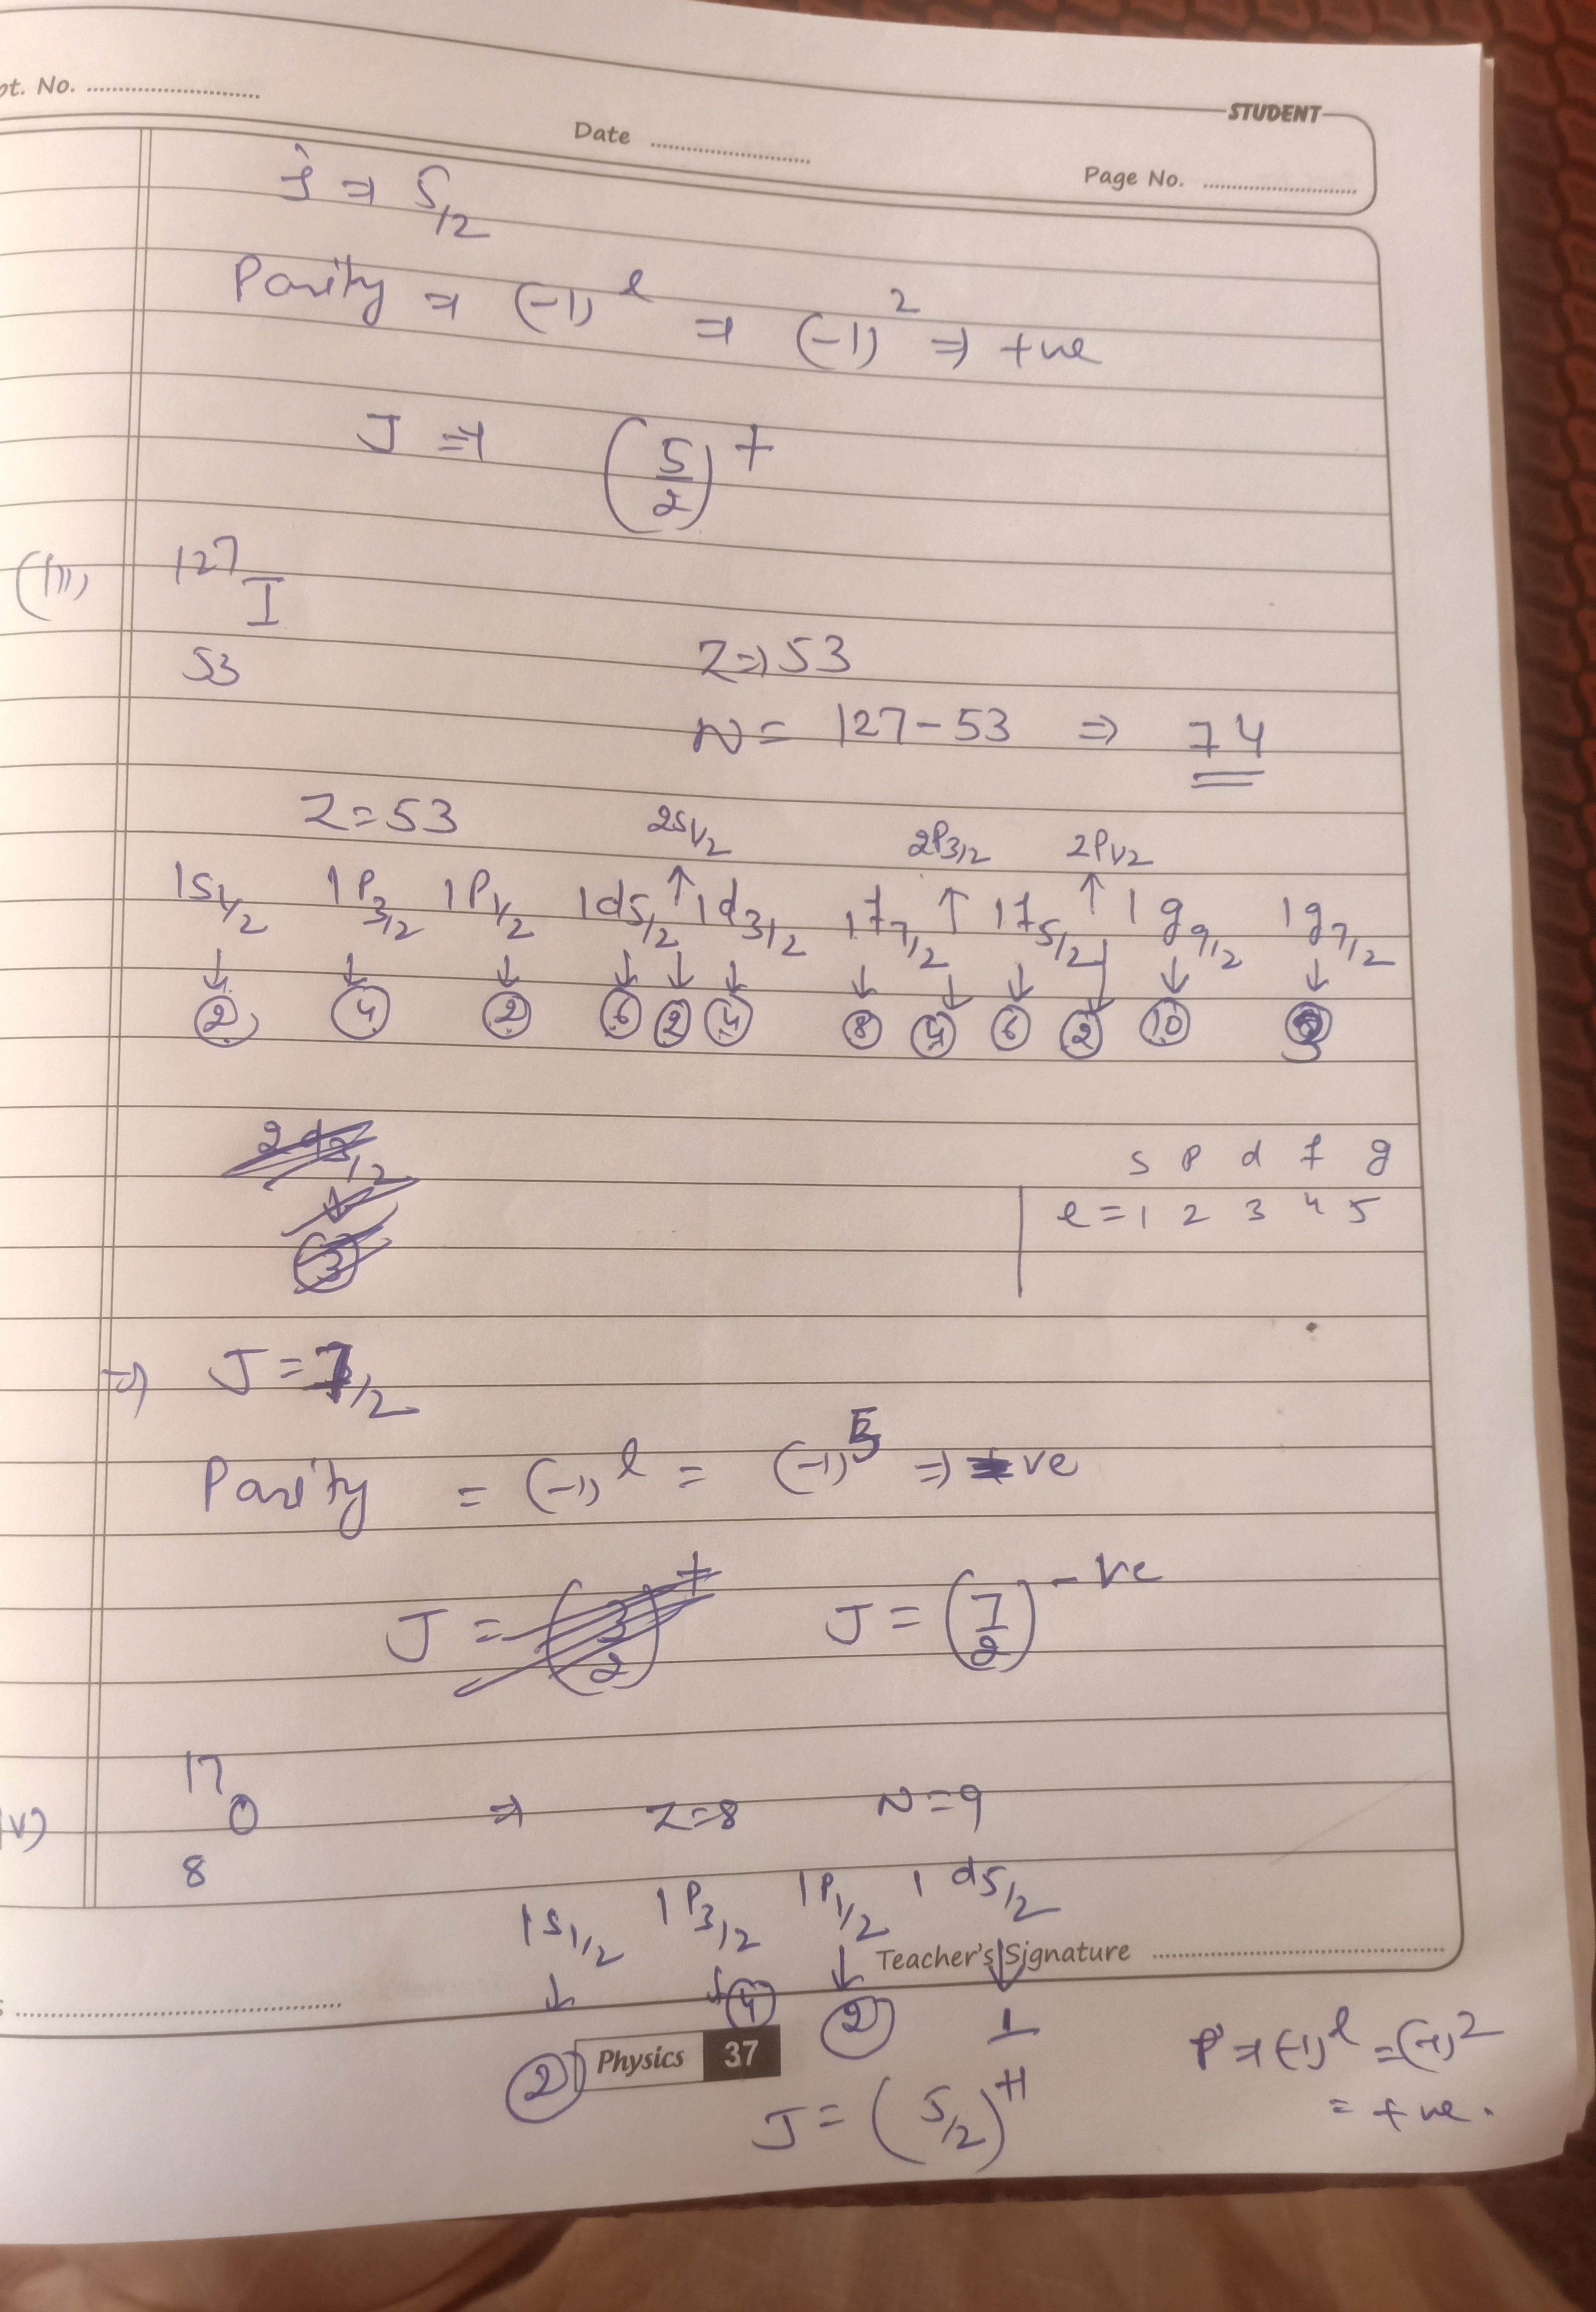 pt. No. ........................
STUDENT
Date ........................
Page No. ........................
j ⇒ 5/2
Parity ⇒ (-1)^l ⇒ (-1)^2 ⇒ +ve
J ⇒ (5/2)^+
(iii) 127
I
53
Z ⇒ 53
N = 127-53 ⇒ 74
Z = 53
2S1/2 2P3/2 2P1/2
1S1/2 1P3/2 1P1/2 1d5/2 ↑ 1d3/2 1f7/2 ↑ 1f5/2 ↑ 1g9/2 1g7/2
↓ ↓ ↓ ↓ ↓ ↓ ↓ ↓ ↓ ↓ ↓ ↓
2 4 2 6 2 4 8 4 6 2 10 3
s p d f g
l = 1 2 3 4 5
⇒ J = 7/2
Parity = (-1)^l = (-1)^5 ⇒ -ve
J = (3/2)^+ J = (7/2)^-ve
17
iv) O ⇒ Z=8 N=9
8
1S1/2 1P3/2 1P1/2 1d5/2
Teacher's Signature ........................
↓ ↓ ↓ ↓
2 4 2 1
Physics 37
P ⇒ (-1)^l = (-1)^2
= +ve.
J = (5/2)^+